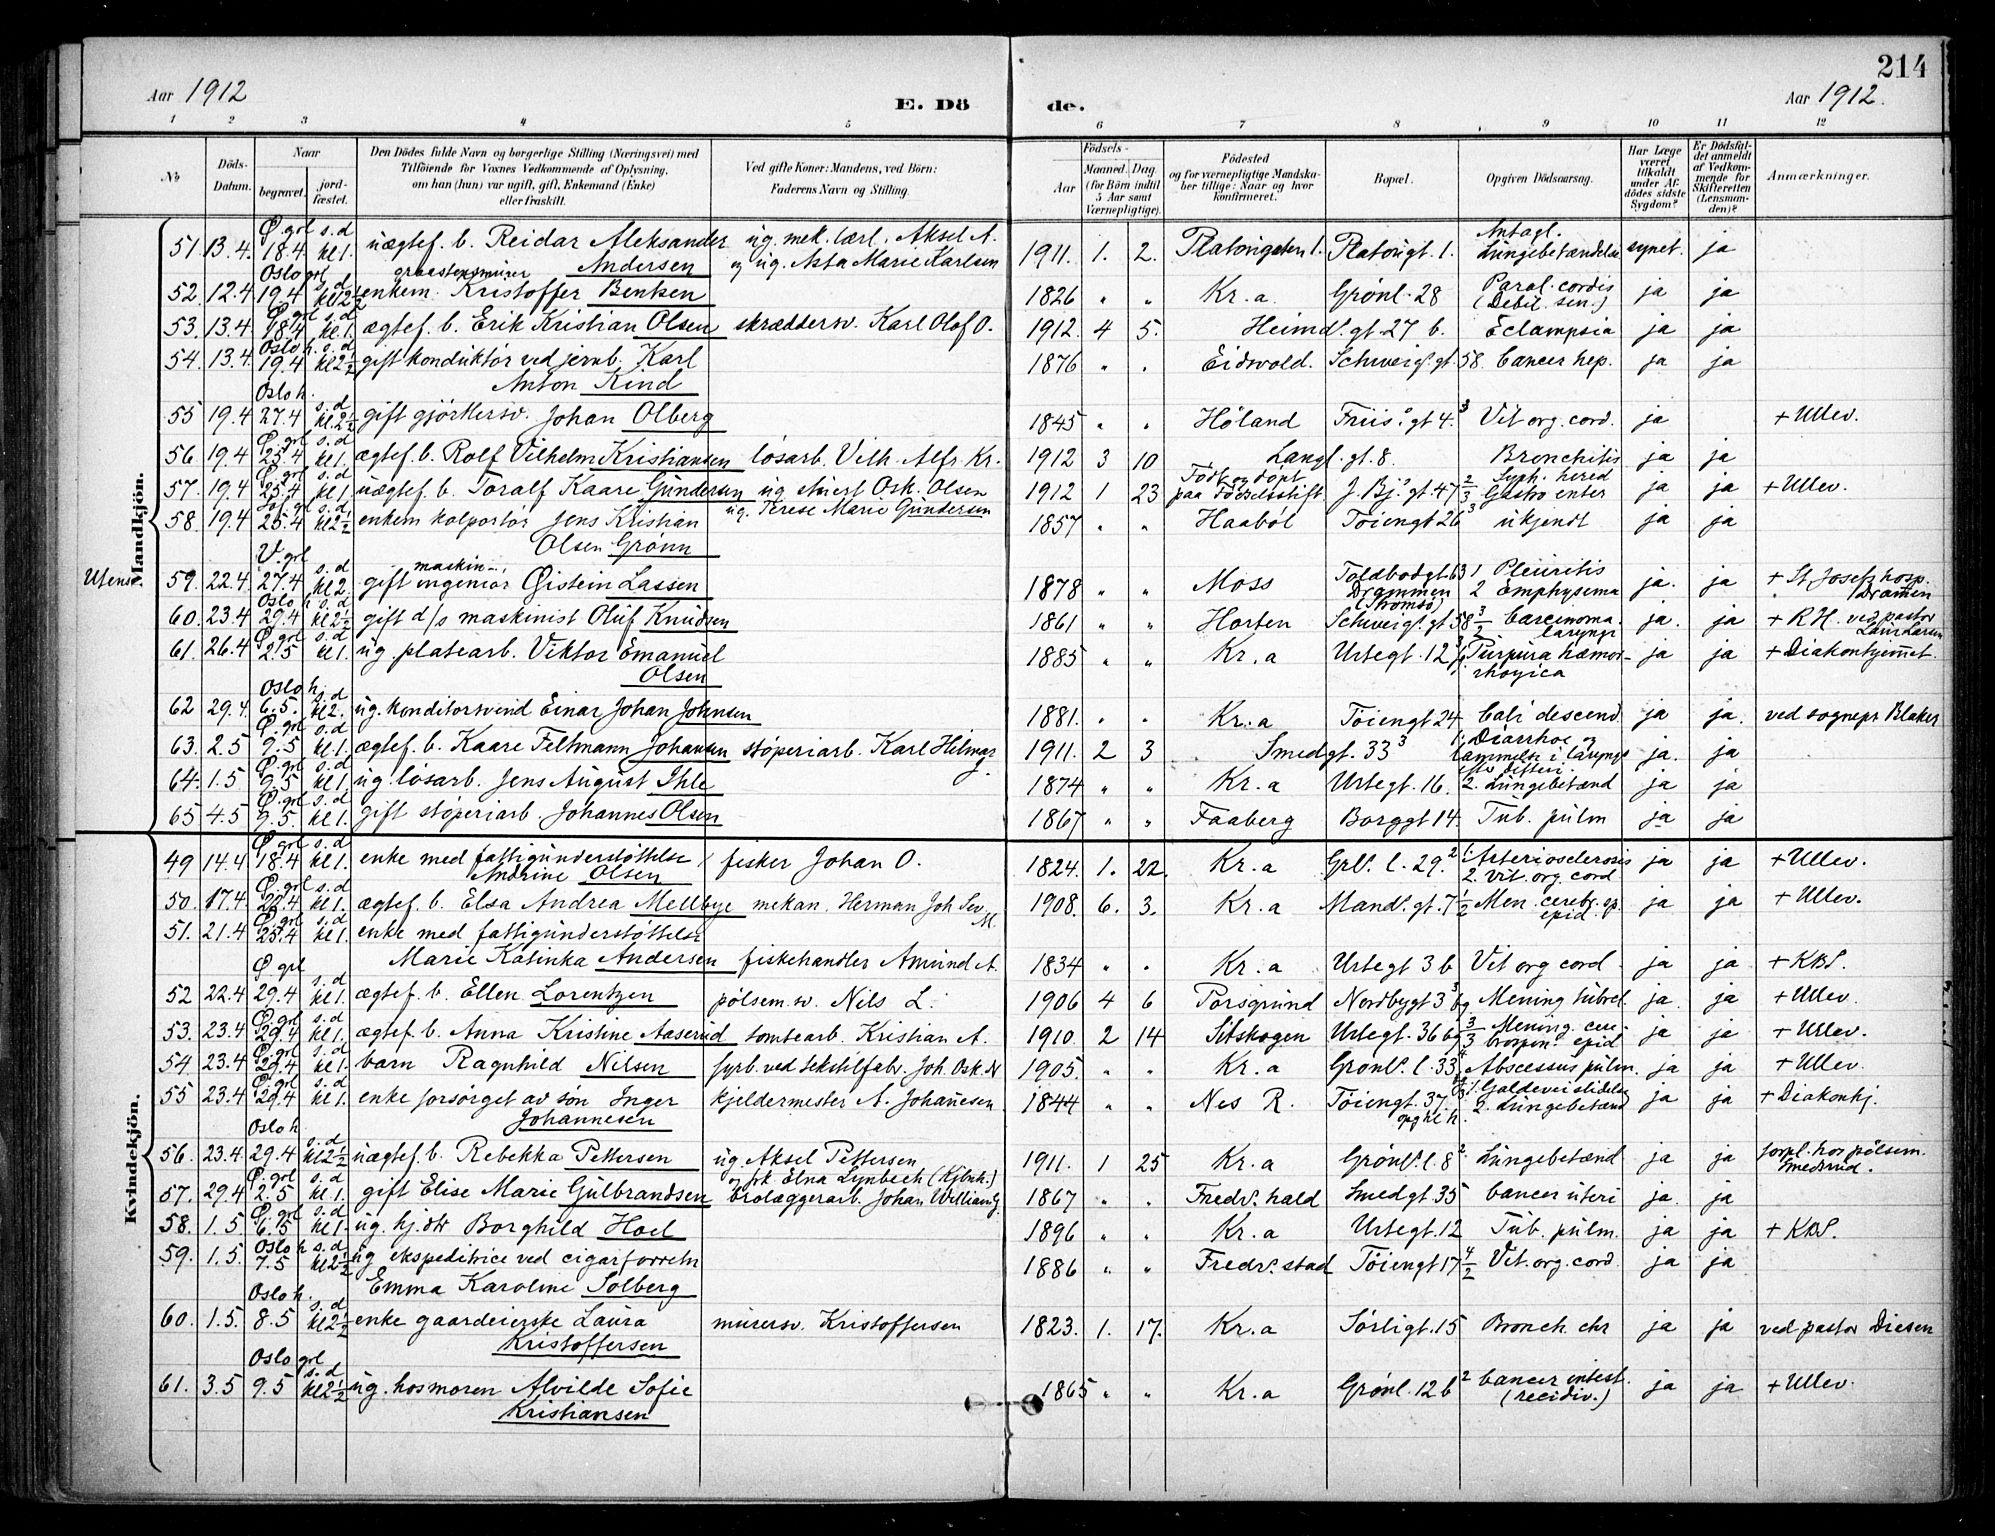 214
Aar 1912
E. Dö
de.
Aar 1912.
1 2 3 4 5 6 7 8 9 10 11 12
No
Döds-Datum.
Naar
begravet.
jord-fæstet.
Den Dödes fulde Navn og borgerlige Stilling (Næringsvei) med
Tilföiende for Voxnes Vedkommende af Oplysning,
om han (hun) var ugift, gift, Enkemand (Enke)
eller fraskilt.
Ved gifte Koner: Mandens, ved Börn:
Faderens Navn og Stilling.
Födsels-
Aar
Maaned. Dag.
(for Börn indtil
5 Aar samt
Værnepligtige).
Födested
og for værnepligtige Mandska-
ber tillige: Naar og hvor
konfirmeret.
Bopæl.
Opgiven Dödsaarsag.
Har Læge
været
tilkaldt
under Af-
dödes sidste
Sygdom?
Er Dödsfal-
det anmeldt
af Vedkom-
mende for
Skifteretten
(Lensman-
den)?
Anmærkninger.
Mandkjön.
51 13.4. Ø. grl 18.4 s.d kl 1. uægtef. b. Reidar Aleksander Andersen ug. mek. lærl. Aksel A. og ug. Asta Marie Karlsen 1911. 1. 2. Platougaten 1. Platougt. 1. Antagl. Lungebetændelse synet. ja
52. 12.4 Oslo grl 19.4 s.d kl 2½ graastensmurer enkem. Kristoffer Bentsen 1826 " " Kr.a. Grönl. 28 Paral. cordis (Debil. sen.) ja ja
53. 13.4 Ø grl 18.4 s.d kl. 1. ægtef. b. Erik Kristian Olsen skræddersv. Karl Olof O. 1912. 4 5. Heimd.s gt. 27 b. Eclampsia ja ja
54. 13.4. Oslo h. 19.4 s.d kl 2½ gift konduktör ved jernb. Karl Anton Kind 1876 " " Eidsvold. Schweig.s gt. 58. Cancer hep. ja ja
55 19.4 Oslo h. 27.4 s.d kl 2½ gift gjörtlersv. Johan Olberg 1845 " " Höland Friis.s gt 4.3 Vit. org. cord. ja + Ullev.
56. 19.4 Ø. grl 25.4 s.d kl 1. ægtef. b. Rolf Vilhelm Kristiansen lösarb. Vilh. Alfr. Kr. 1912 3 10 Langl. gt. 8. Bronchitis ja ja
57. 19.4 Ø. grl 25.4 s.d kl 1. uægtef. b. Toralf Kaare Gundersen ug. stuert Osk. Olsen ug. Terese Marie Gundersen 1912 1 23 Födt og döpt paa Födselsstift J. Bj.s gt. 47 2/3 Syph. hered Gastro enter ja ja + Ullev.
58. 19.4 grl 25.4 s.d kl 2½ enkem kolportör Jens Kristian Olsen Grönn 1857 " " Haaböl Töiengt 26 3 ukjendt ja ja
Utens 59. 22.4. V. grl 27.4 s.d kl 2. gift maskin-ingeniör Øistein Lassen 1878 " " Moss Toldbodgt. 63 Drammen (Strömsö) 1 Pleuritis 2 Emphysema ja. ja + St Josefs hosp. Drammen
60. 23.4 Oslo h 29.4 s.d kl 2½ gift d/s maskinist Oluf Knudsen 1861 " " Horten Schweig.s gt 58 3/2 Carcinoma laryngs ja. ja + RH. ved pastor Laur. Larsen
61. 26.4 Ø. grl 2.5 s.d kl 1. ug. platearb. Viktor Emanuel Olsen 1885 " " Kr.a Urtegt. 12 Purpura hæmor-rhagica ja ja + Diakonhjemmet.
62 29.4. Oslo h. 6.5. s.d kl 2. ug. konditorsvend Einar Johan Johnsen 1881. " " Kr.a Töiengt 24 Cali descend ja ja. ved sognepr Blaker
63. 2.5 Ø. grl 9.5 s.d kl 1. ægtef. b. Kaare Feltmann Johansen stöperiarb. Karl Hilmar J. 1911. 2 3 Smedgt. 33 3 1. Diarrhoe og lammelse i larynx efter difteri. ja. ja
64. 1.5 Ø. grl 9.5 s.d kl 1. ug. lösarb. Jens August Ihle 1874 " " Kr.a Urtegt. 16. 2. Lungebetænd ja ja
65 4.5 Ø. grl 9.5. s.d kl 1. gift stöperiarb. Johannes Olsen 1867 " " Faaberg Borggt 14. Tub. pulm ja ja
Kvindekjön.
49 14.4 Ø grl 18.4 s.d kl 1. enke med fattigunderstöttelse Andrine Olsen fisker Johan O. 1824. 1. 22. Kr.a Grl.s l. 29.2 1. Arteriosclerosis 2. Vit. org. cord ja ja + Ullev.
50. 17.4. Ø. grl 22.4 s.d kl 1. ægtef. b. Elsa Andrea Mellbye mekan. Herman Joh Sev M. 1908. 6. 3. Kr.a Mand.s gt. 7 1/2 Men. cerebr. sp. epid. ja ja + Ullev.
51. 21.4 Ø grl 25.4 s.d kl 1. enke med fattigunderstöttelse Marie Katinka Andersen fiskehandler Amund A. 1834 " " Kr.a Urtegt 3 b Vit org cord ja ja + KBS.
52 22.4 Ø grl 29.4 s.d kl 1. ægtef. b. Ellen Lorentzen pölsem. sv. Nils L. 1906 4 6 Porsgrund Nordbygt 3 3 Mening tubrel ja. ja + Ullev.
53. 23.4 Ø. grl 29.4 s.d kl 1. ægtef. b. Anna Kristine Aaserud tomtearb. Kristian A. 1910 2 14 Sitskogen Urtegt. 36 b 3/3 Mening. cere-brospin. epid ja ja + Ullev.
54. 23.4 Ø. grl 29.4 s.d kl 1. barn Ragnhild Nilsen fyrb. ved tekstilfabr. Joh. Osk. N 1905. " " Kr.a Grönl.s l. 33 4 Abscessus pulm. ja ja + Ullev.
55 23.4 Ø. grl 29.4 s.d kl 1. enke forsörget av sön Inger Johannesen kjeldermester A. Johanesen 1844 " " Nes R. Töiengt. 37. opg kl. h. 1. Galdeveislidelse 2. Lungebetænd ja ja + Diakonhj.
56. 23.4 Oslo h 29.4 s.d kl 2½ uægtef. b. Rebekka Pettersen ug. Aksel Pettersen og frk. Elna Lynbech (Kjbnh.) 1911. 1 25 Kr.a Grönl.s l. 8 2 Lungebetænd ja ja forpl. hos pölsem. Smedsrud.
57. 29.4 Ø. grl 2.5 s.d kl 1. gift Elise Marie Gulbrandsen brolæggerarb. Johan William G. 1867 " " Fredr.s hald Smedgt. 35 Cancer uteri ja. ja
58. 1.5 Ø. grl 6.5 s.d kl 1. ug. hj. dtr Borghild Hoel 1896 " " Kr.a Urtegt. 12 Tub. pulm. ja ja + KBS.
59. 1.5. Oslo h 7.5 s.d kl 2½ ug ekspeditrice ved cigarforretn Emma Karoline Solberg 1886 " " Fredr.s stad Töiengt 17 4/2 Vit. org. cord ja ja
60. 1.5. Oslo h. 8.5 s.d kl 2½ enke gaardeierske Laura Kristoffersen murersv. Kristoffersen 1823. 1. 17. Kr.a Sörligt. 15 Bronch. chr ja ja ved pastor Diesen
61. 3.5 Oslo grl 9.5 s.d kl 2½ ug. hos moren Alvilde Sofie Kristiansen 1865 " " Kr.a Grönl. 12 b 2 Cancer intest. (recidiv.) ja ja + Ullev.